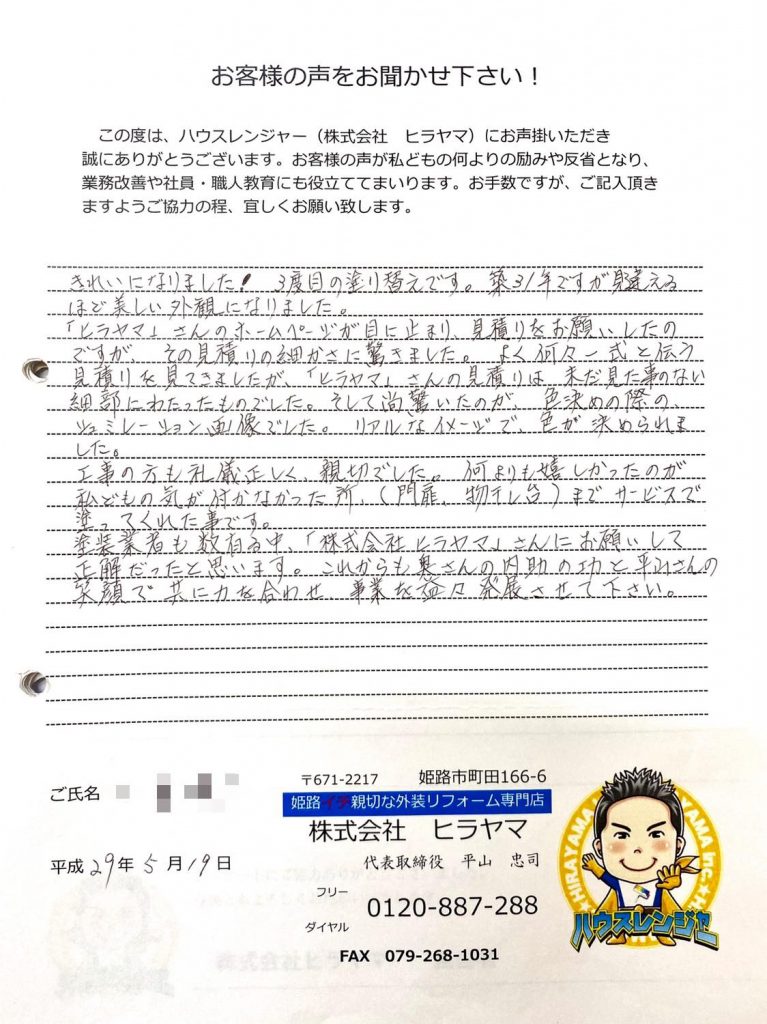 お客様の声をお聞かせ下さい！
この度は、ハウスレンジャー（株式会社　ヒラヤマ）にお声掛いただき
誠にありがとうございます。お客様の声が私どもの何よりの励みや反省となり、
業務改善や社員・職人教育にも役立ててまいります。お手数ですが、ご記入頂き
ますようご協力の程、宜しくお願い致します。
きれいになりました！　3度目の塗り替えです。築31年ですが見違える
ほど美しい外観になりました。
「ヒラヤマ」さんのホームページが目に止まり、見積りをお願いしたの
ですが、その見積りの細かさに驚きました。よく何々一式と伝う
見積りを見てきましたが、「ヒラヤマ」さんの見積りは、未だ見た事のない
細部にわたったものでした。そして尚驚いたのが、色決めの際の、
シュミレーション画像でした。リアルなイメージで、色が決められま
した。
工事の方も礼儀正しく、親切でした。何よりも嬉しかったのが
私どもの気が付かなかった所、（門扉、物干し台）までサービスで
塗ってくれた事です。
塗装業者も数有る中、「株式会社ヒラヤマ」さんにお願いして
正解だったと思います。これからも奥さんの内助の功と平山さんの
笑顔で共に力を合わせ、事業を益々発展させて下さい。
ご氏名
平成29年5月19日
〒671-2217　姫路市町田166-6
姫路イチ親切な外装リフォーム専門店
株式会社　ヒラヤマ
代表取締役　平山　忠司
フリー
ダイヤル
0120-887-288
FAX　079-268-1031
HIRAYAMA
ハウスレンジャー